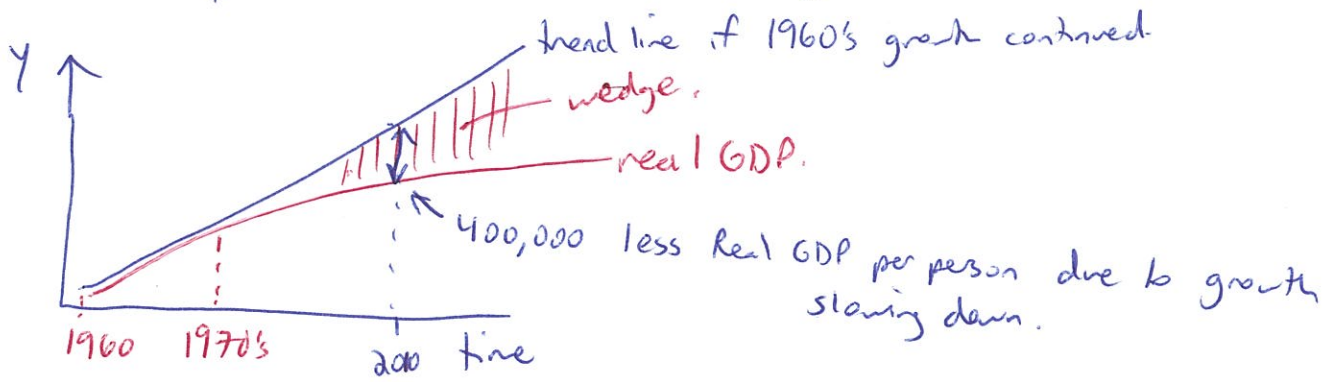 trend line if 1960's growth continued.
Y
wedge.
real GDP.
400,000 less Real GDP per person due to growth
slowing down.
1960 1970's 2010 time